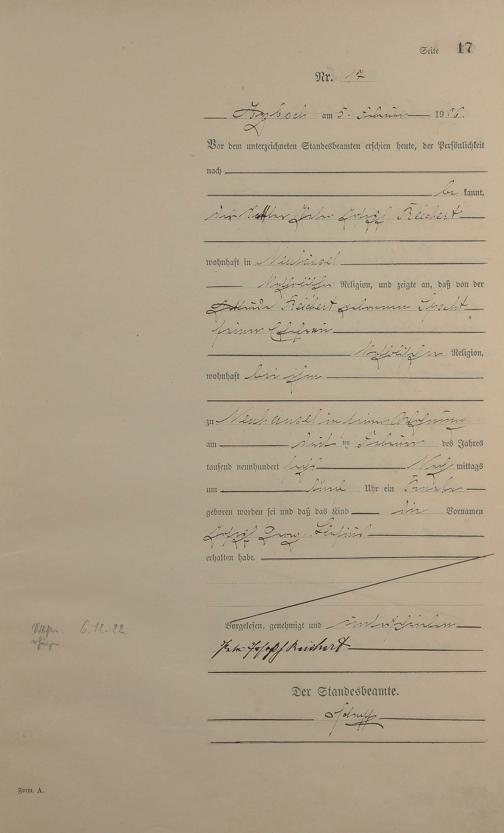 Seite 17
Nr. 17
am 5. Februar 1906.
Vor dem unterzeichneten Standesbeamten erschien heute, der Persönlichkeit
nach
be kannt,
der Peter Joseph Reichert
wohnhaft in Neuhäusel
katholischer Religion, und zeigte an, daß von der
Reichert geborenen Specht
seiner Ehefrau
katholischer Religion,
wohnhaft bei ihm
zu Neuhäusel in seiner Wohnung
am drei ten Februar des Jahres
tausend neunhundert sechs Nach mittags
um Uhr ein Knabe
geboren worden sei und daß das Kind die Vornamen
Joseph Georg
erhalten habe.
Vorgelesen, genehmigt und unterschrieben
Peter Joseph Reichert
Der Standesbeamte.
6.12.22
Form. A.